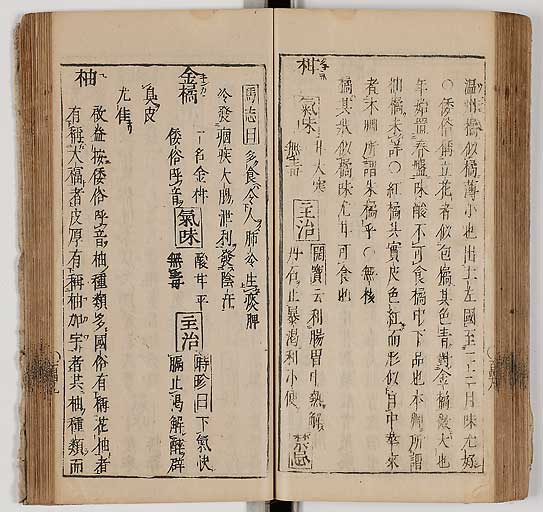 温州橘似橘薄小也出土左國至十二月味尤好
○倭俗稱立花者似包橘其色青對金橘最大也
年始置春盤味酸不可食橘中下品也本朝所謂
柑橘未詳○紅橘其實皮色紅而形似自中華來
者本朝所謂朱橘乎○無核
橘其状似橘味尤甘可食也
柑
氣味 甘大寒無毒
主治 開寶云利腸胃中熱解
丹石止暴渇利小便
禁忌
馬志曰多食令人肺冷生痰脾
冷發痼疾大腸泄利發陰汗
金橘 一名金柑
倭俗呼音
氣味 酸甘平無毒
主治 時珍曰下氣快
膈止渇解酲辟
臭皮
尤佳
柚
改益按倭俗呼音柚種類多國俗有稱花柚者
有稱大福者皮厚有稱柚加宇者共柚種類而